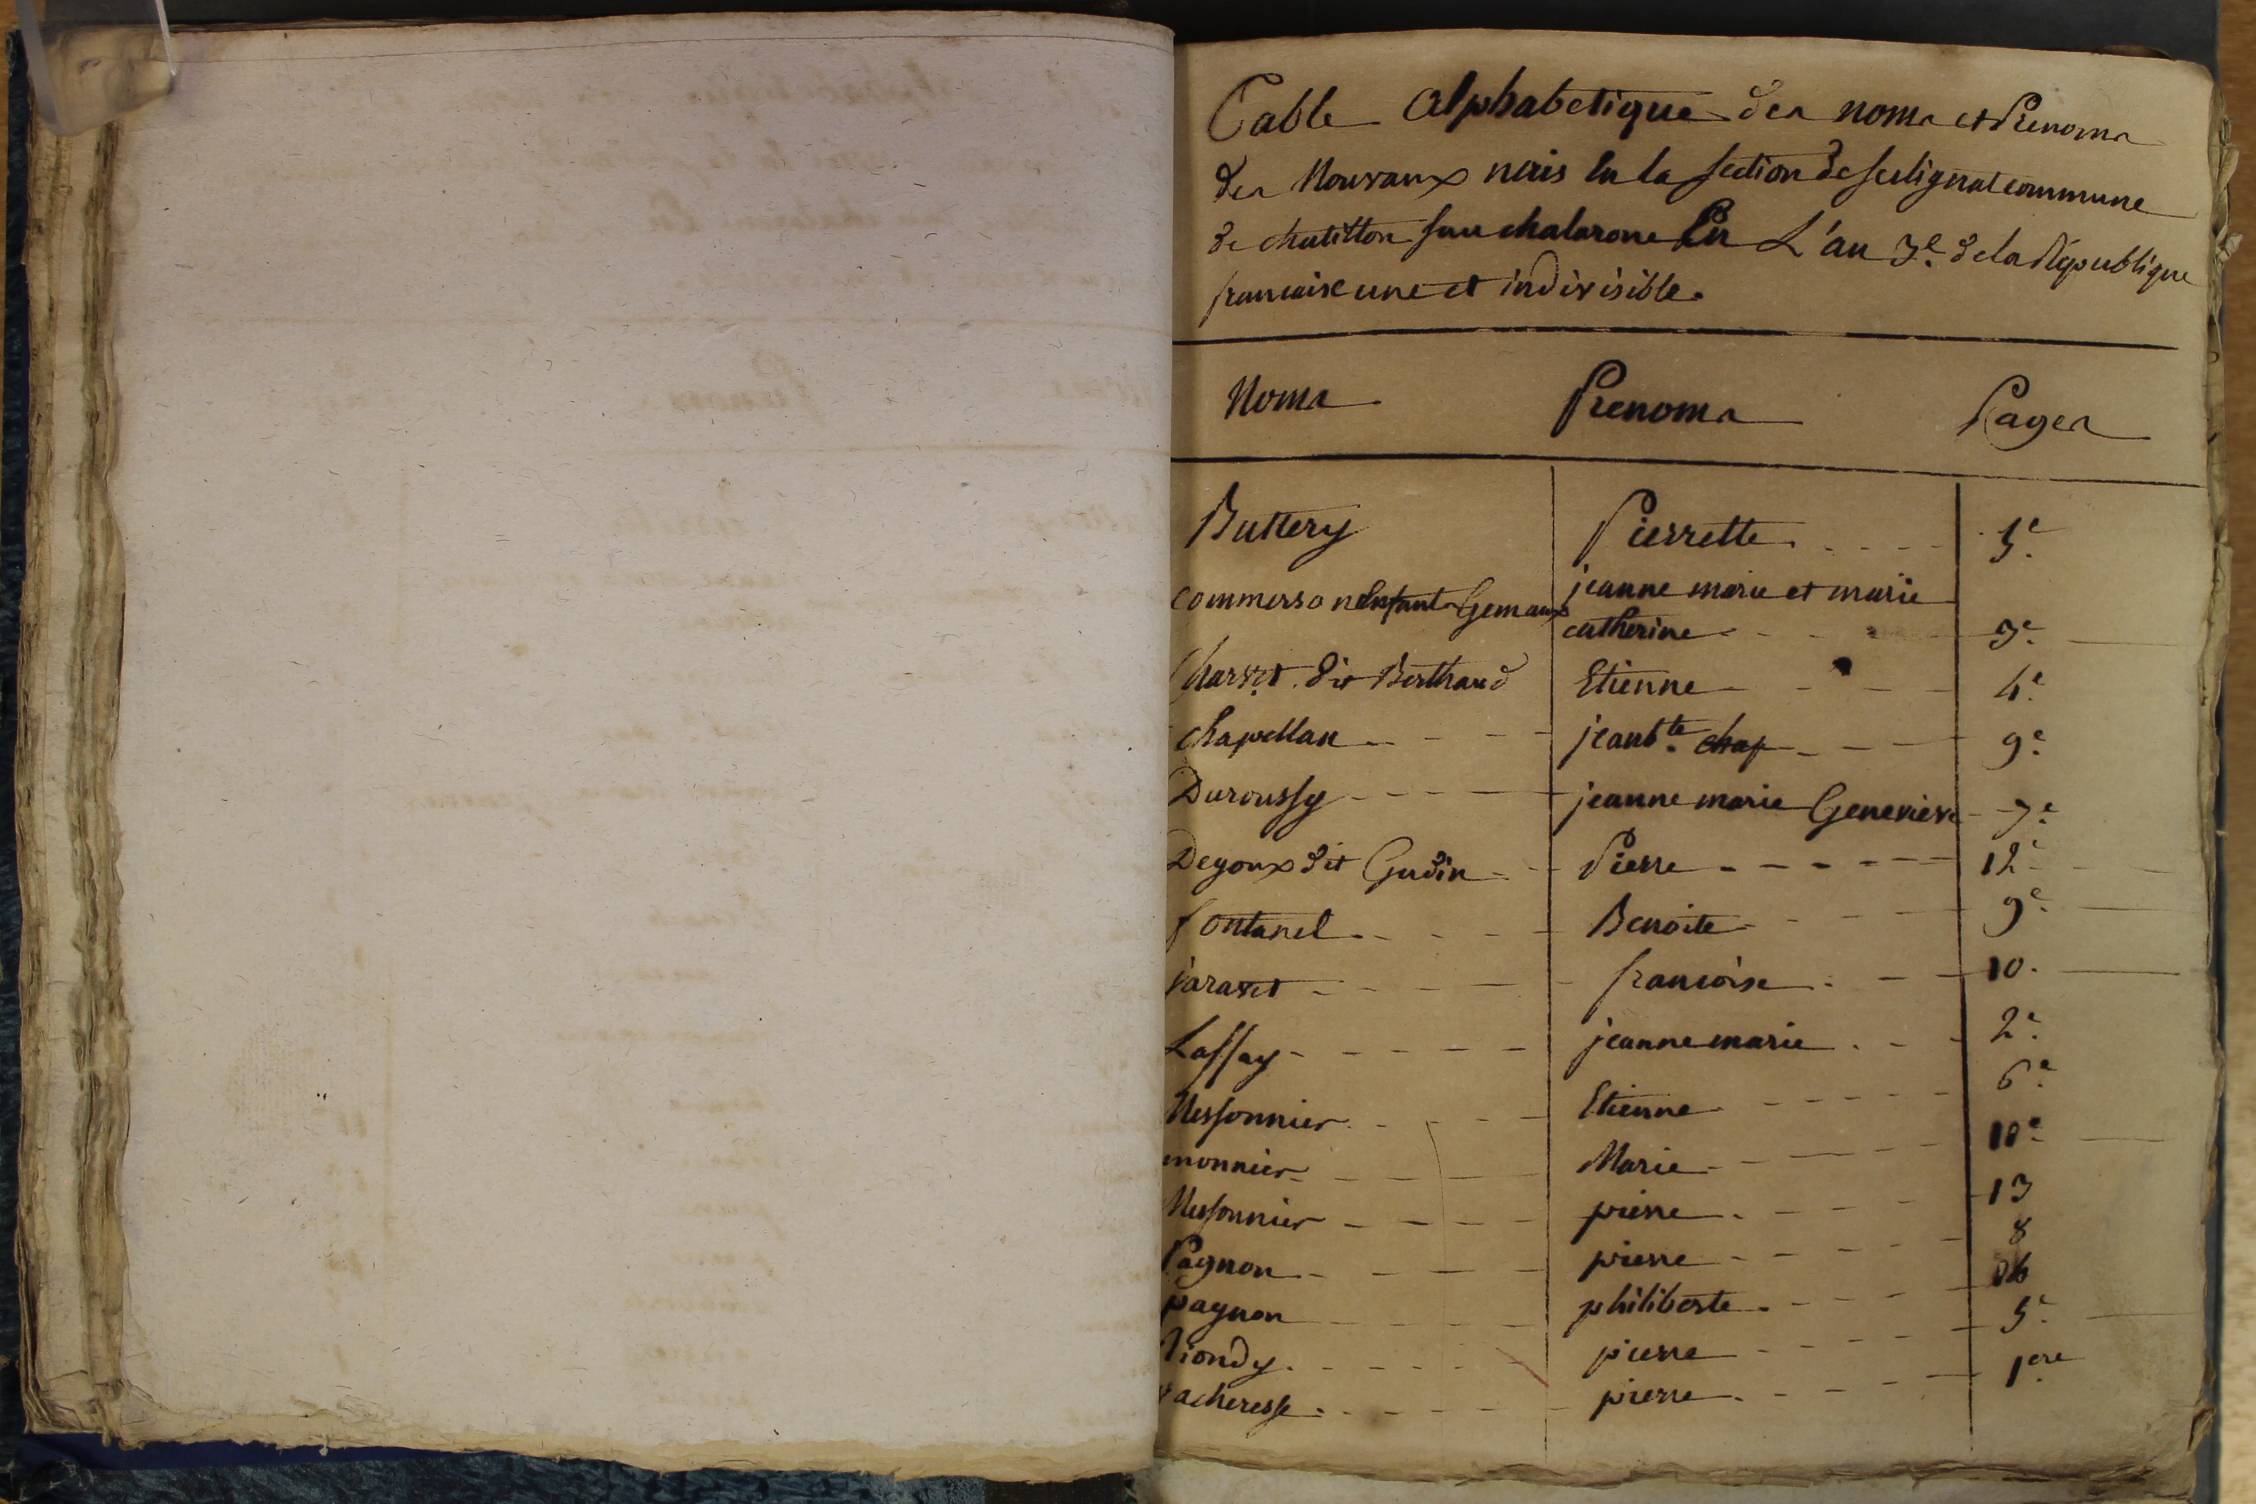 Table Alphabetique des noms et Prenoms
des Nouvaux neïs en la section de sulignat commune
de chatillon sur chalarone En L'an 3e. de la République
francaise une et indivisible.
Noms Prenoms Pages
Buttery Pierrette 5e.
Commerson Enfants Gemaux jeanne marie et marie
catherine 3e.
Charvet dit Berthaud Etienne 4e.
chapellan jean bte. chap 9e.
Duroussy jeanne marie Genevieve 7e.
Degoux dit Gudin Pierre 12e
fontanel Benoite 9e.
jaravet francoise 10.
Lassay jeanne marie 2e.
Messonnier Etienne 6e.
monnier Marie 10e.
Messonnier pierre 13
Pagnon pierre 8
pagnon philiberte
Riondy pierre 5e
vacheresse pierre 1ere